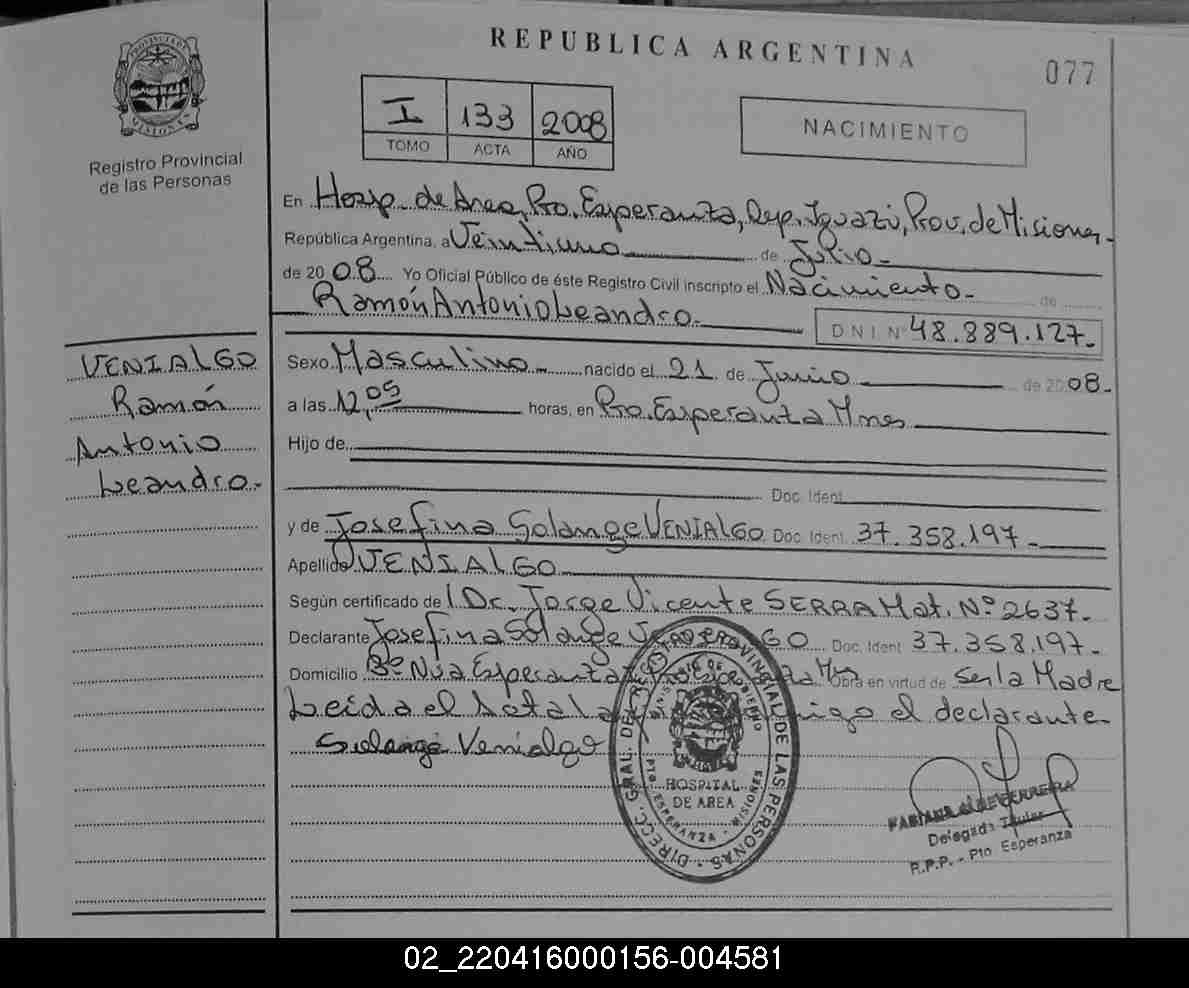 REPUBLICA ARGENTINA
077
PROVINCIA DE MISIONES
Registro Provincial
de las Personas
I 133 2008
TOMO ACTA AÑO
NACIMIENTO
En Hosp. de Area, Pto. Esperanza, Dep. Iguazú, Prov. de Misiones-
República Argentina, a Veintiuno de Julio-
de 20 08 Yo Oficial Público de éste Registro Civil inscripto el Nacimiento- de
Ramón Antonio Leandro.
DNI Nº 48.889.127-
VENIALGO
Ramón
Antonio
Leandro-
Sexo Masculino nacido el 21 de Junio de 2008-
a las 12,05 horas, en Pto. Esperanza Mnes
Hijo de
Doc. Ident
y de Josefina Solange VENIALGO Doc. Ident. 37.358.197-
Apellido VENIALGO
Según certificado de Dr. Jorge Vicente SERRA Mat. Nº 2637-
Declarante Josefina Solange Doc. Ident 37.358.197-
Domicilio Bº Nva Esperanza Mnes Obra en virtud de Ser la Madre
Leida el Acta la el declarante-
Solange Venialgo
DIRECC. GRAL. DEL REGISTRO PROVINCIAL DE LAS PERSONAS
MINISTERIO DE GOBIERNO
HOSPITAL
DE AREA
Pto ESPERANZA - MISIONES
FABIANA
Delegada Titular
R.P.P. - Pto Esperanza
02_220416000156-004581